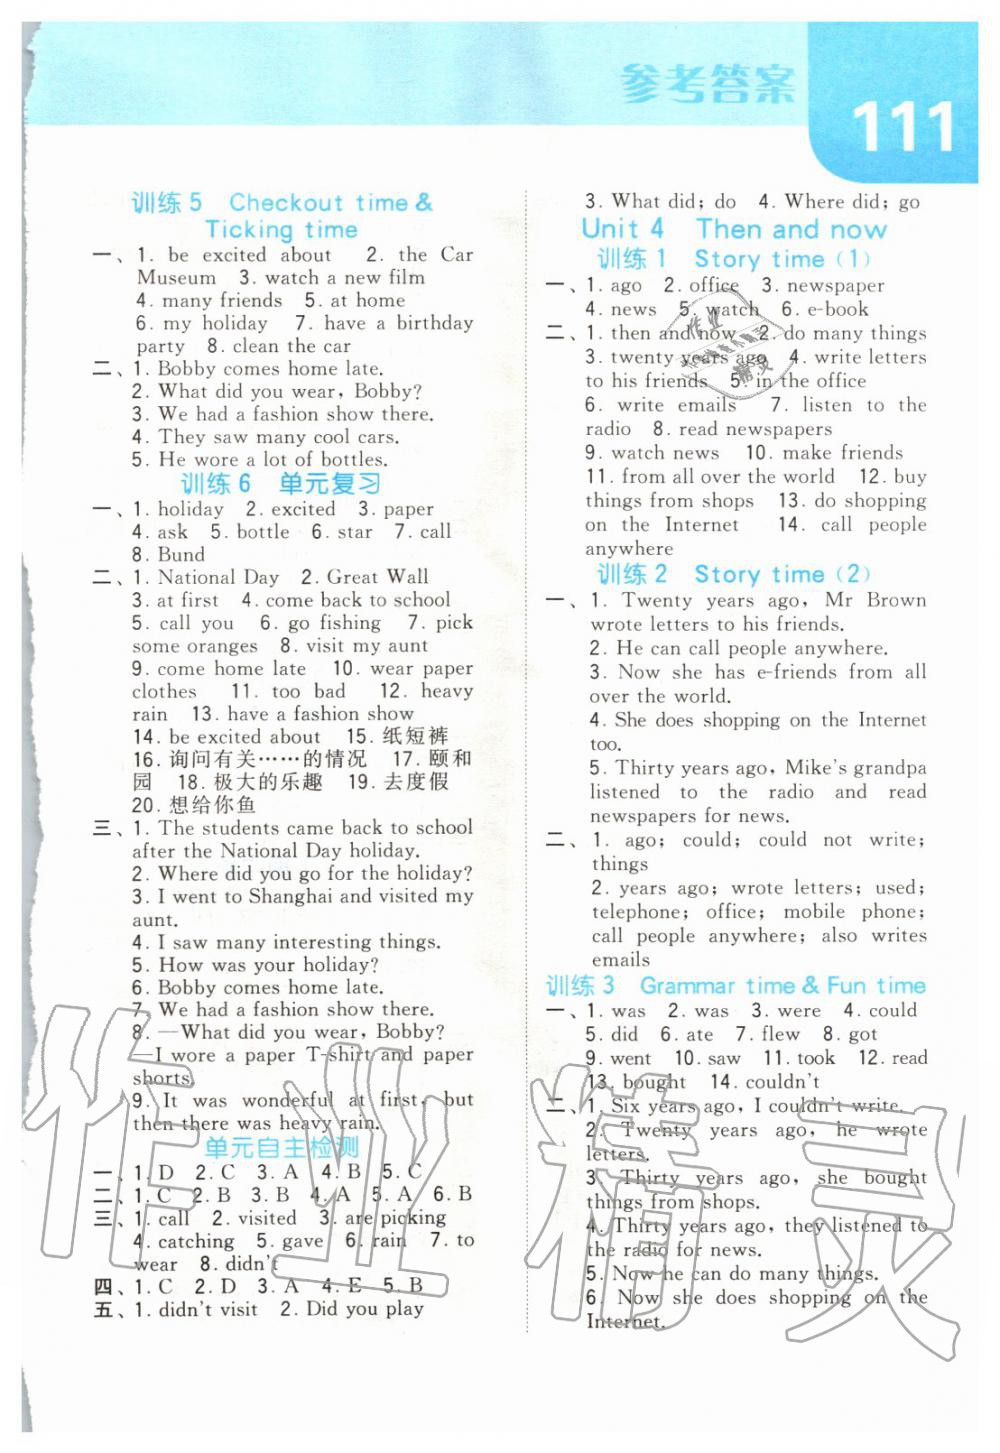 参考答案
111
训练5 Checkout time &
Ticking time
一、1. be excited about 2. the Car
Museum 3. watch a new film
4. many friends 5. at home
6. my holiday 7. have a birthday
party 8. clean the car
二、1. Bobby comes home late.
2. What did you wear, Bobby?
3. We had a fashion show there.
4. They saw many cool cars.
5. He wore a lot of bottles.
训练6 单元复习
一、1. holiday 2. excited 3. paper
4. ask 5. bottle 6. star 7. call
8. Bund
二、1. National Day 2. Great Wall
3. at first 4. come back to school
5. call you 6. go fishing 7. pick
some oranges 8. visit my aunt
9. come home late 10. wear paper
clothes 11. too bad 12. heavy
rain 13. have a fashion show
14. be excited about 15. 纸短裤
16. 询问有关……的情况 17. 颐和
园 18. 极大的乐趣 19. 去度假
20. 想给你鱼
三、1. The students came back to school
after the National Day holiday.
2. Where did you go for the holiday?
3. I went to Shanghai and visited my
aunt.
4. I saw many interesting things.
5. How was your holiday?
6. Bobby comes home late.
7. We had a fashion show there.
8. —What did you wear, Bobby?
—I wore a paper T-shirt and paper
shorts.
9. It was wonderful at first, but
then there was heavy rain.
单元自主检测
一、1. D 2. C 3. A 4. B 5. C
二、1. C 2. B 3. B 4. A 5. A 6. B
三、1. call 2. visited 3. are picking
4. catching 5. gave 6. rain 7. to
wear 8. didn't
四、1. C 2. D 3. A 4. E 5. B
五、1. didn't visit 2. Did you play
3. What did; do 4. Where did; go
Unit 4 Then and now
训练1 Story time (1)
一、1. ago 2. office 3. newspaper
4. news 5. watch 6. e-book
二、1. then and now 2. do many things
3. twenty years ago 4. write letters
to his friends 5. in the office
6. write emails 7. listen to the
radio 8. read newspapers
9. watch news 10. make friends
11. from all over the world 12. buy
things from shops 13. do shopping
on the Internet 14. call people
anywhere
训练2 Story time (2)
一、1. Twenty years ago, Mr Brown
wrote letters to his friends.
2. He can call people anywhere.
3. Now she has e-friends from all
over the world.
4. She does shopping on the Internet
too.
5. Thirty years ago, Mike's grandpa
listened to the radio and read
newspapers for news.
二、1. ago; could; could not write;
things
2. years ago; wrote letters; used;
telephone; office; mobile phone;
call people anywhere; also writes
emails
训练3 Grammar time & Fun time
一、1. was 2. was 3. were 4. could
5. did 6. ate 7. flew 8. got
9. went 10. saw 11. took 12. read
13. bought 14. couldn't
二、1. Six years ago, I couldn't write.
2. Twenty years ago, he wrote
letters.
3. Thirty years ago, she bought
things from shops.
4. Thirty years ago, they listened to
the radio for news.
5. Now he can do many things.
6. Now she does shopping on the
Internet.
作业精灵